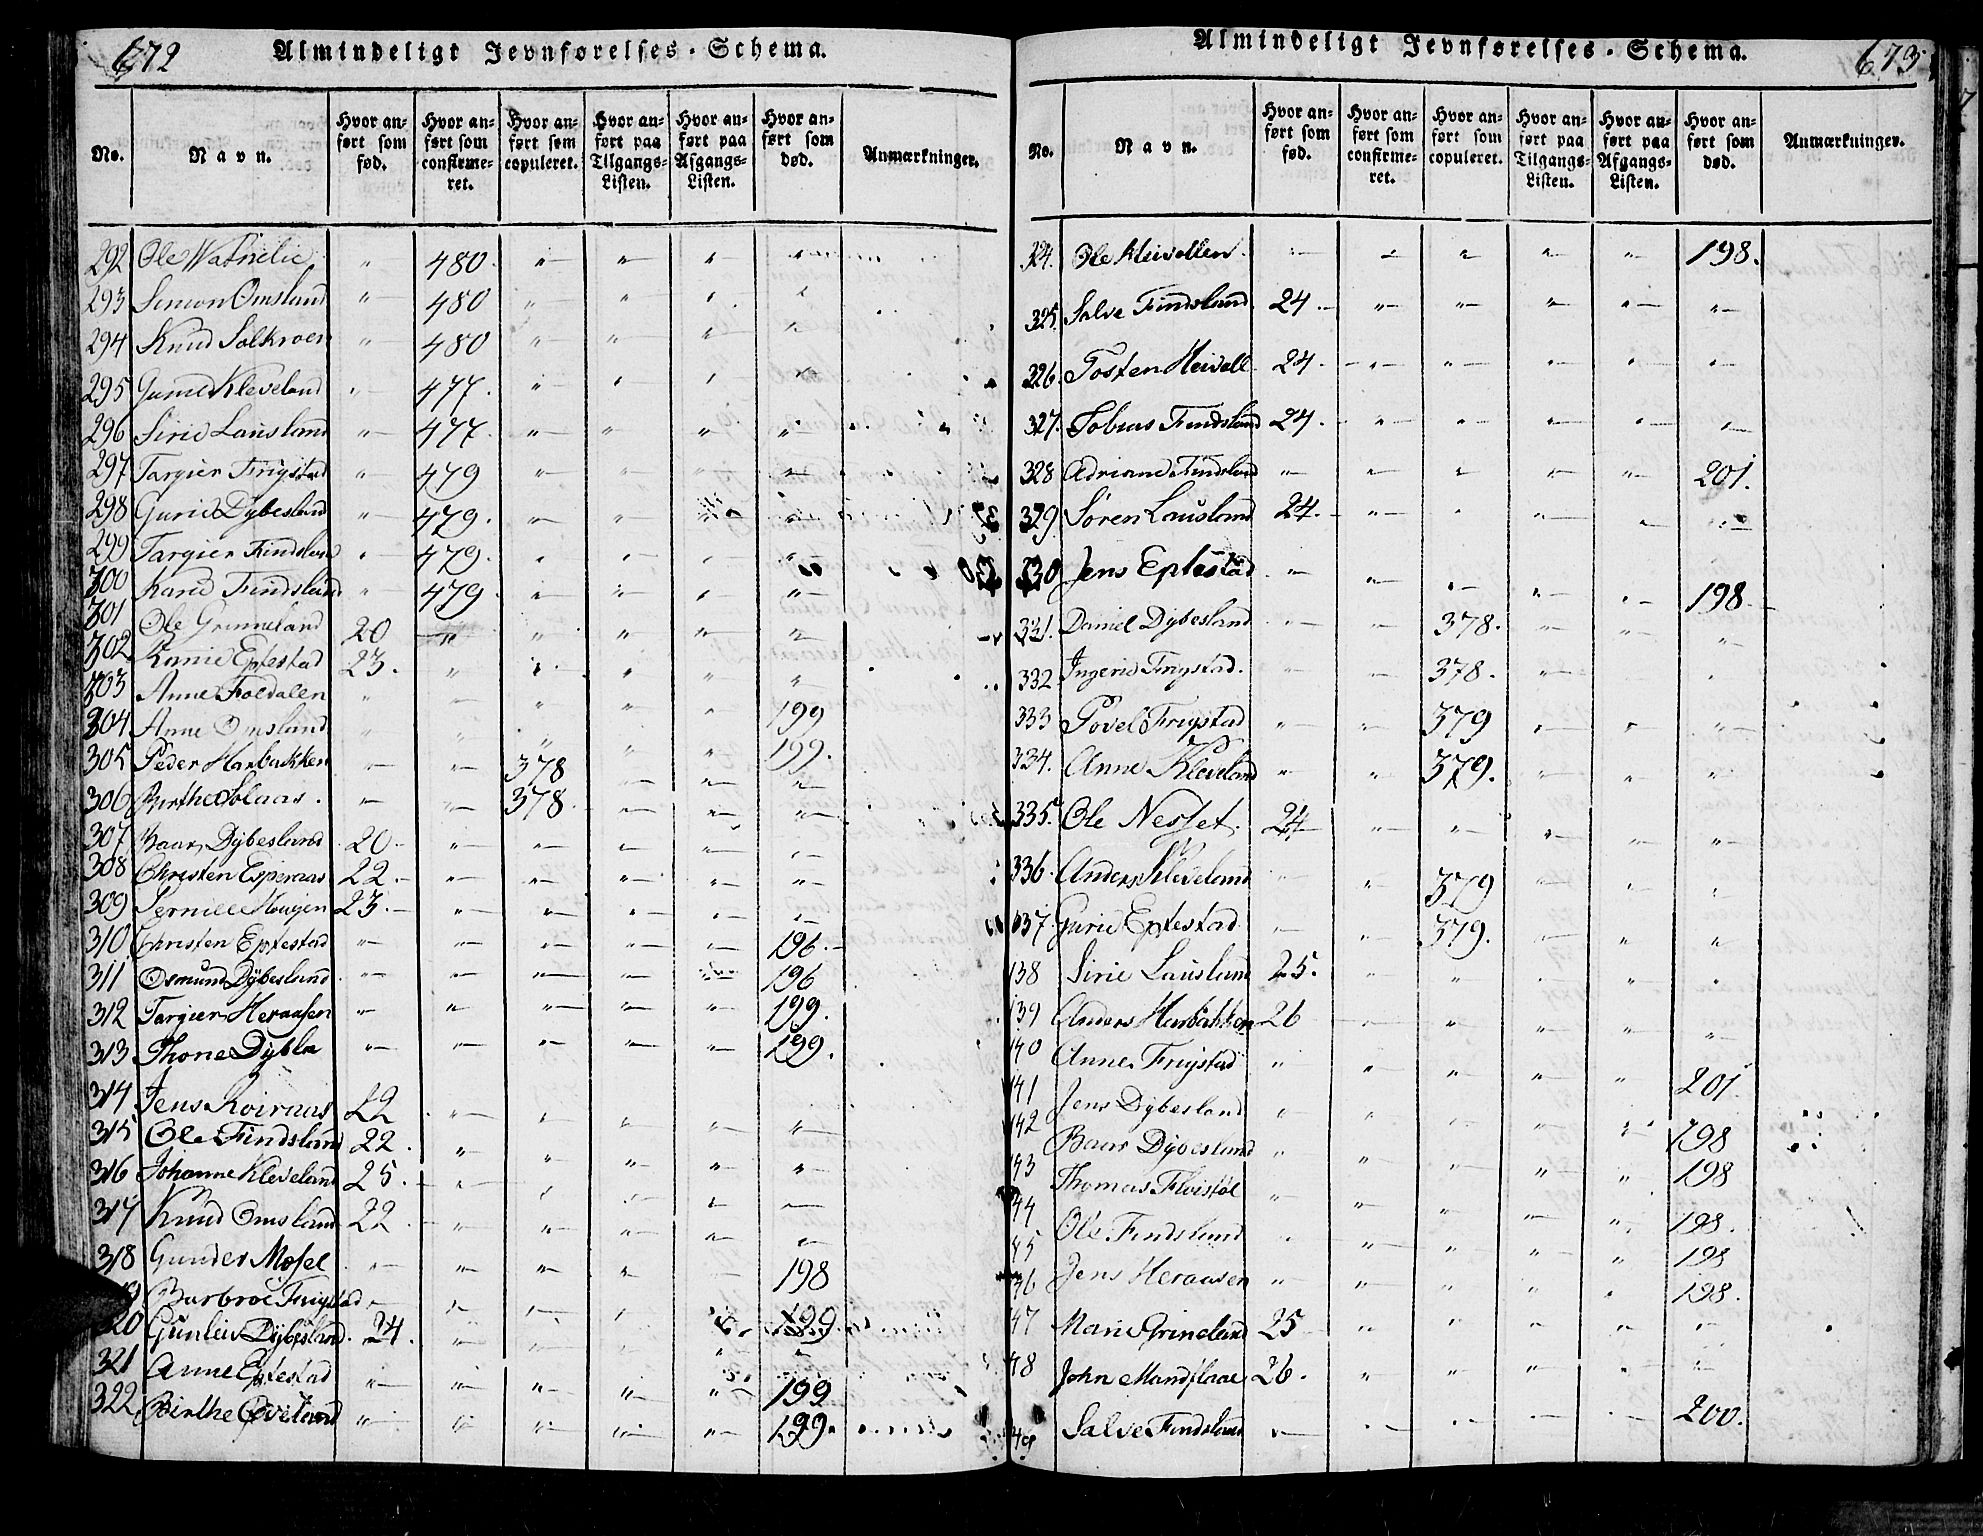 672
Almindeligt Jevnførelses-Schema.
No. Navn. Hvor anført som fød. Hvor anført som confirmeret. Hvor anført som copuleret. Hvor anført paa Tilgangs-Listen. Hvor anført paa Afgangs-Listen. Hvor anført som død. Anmærkninger.
292 Ole " 480 " " " "
293 Simon Omsland " 480 " " " "
294 Knud Solkroen " 480 " " " "
295 Gune Kleveland " 477 " " " "
296 Sirie Lausland " 477 " " " "
297 Targier Frigstad " 479 " " " "
298 Gurie Dybesland " 479 " " " "
299 Targier Findsland " 479 " " " "
300 Karie Findsland " 479 " " " "
301 Ole Grimeland 20 " " " " "
302 Eptestad 23 " " " " "
303 Anne Foedalen " " " " " 199
304 Anne Omsland " " " " " 199
305 Peder Harbakken " " 378 " " "
306 Birthe Solaas " " 378 " " "
307 Baar Dybesland 20 " " " " "
308 Christen Esperaas 22 " " " " "
309 Haugen 23 " " " " "
310 Christen Eptestad " " " " " 196
311 Osmund Dybesland " " " " " 196
312 Targier Heraasen " " " " " 199
313 Thone " " " " " 199
314 Jens 22 " " " " "
315 Ole Findsland 22 " " " " "
316 Johanne Kleveland 25 " " " " "
317 Knud Omsland 22 " " " " "
318 Gunder Mosel " " " " " 198
Barbroe Frigstad " " " " " 199
320 Gunleiv Dybesland 24 " " " " "
321 Anne Eptestad " " " " " 199
322 Birthe " " " " " 199
673
Almindeligt Jevnførelses-Schema.
No. Navn. Hvor anført som fød. Hvor anført som confirmeret. Hvor anført som copuleret. Hvor anført paa Tilgangs-Listen. Hvor anført paa Afgangs-Listen. Hvor anført som død. Anmærkninger.
324. Ole " " " " " 198.
325. Salve Findsland 24 " " " " "
326. Tosten Heivell 24 " " " " "
327. Tobias Findsland 24 " " " " "
328 Adriane Findsland " " " " " 201.
329 Søren Lausland 24 " " " " "
330 Jens Eptestad " " " " " 198
331. Daniel Dybesland " " 378. " " "
332 Ingerie Frigstad. " " 378. " " "
333 Povel Frigstad " " 379 " " "
334. Anne Kleveland " " 379. " " "
335. Ole Nesset 24 " " " " "
336 Anders Kleveland " " 379 " " "
337 Gurie Eptestad " " 379. " " "
38 Sirie Lausland 25. " " " " "
39 Anders Harbakken 26 " " " " "
40 Anne Frigstad " " " " " 201
41 Jens Dybesland " " " " " 198
42 Baar Dybesland " " " " " 198
43 Thomas Floistøl " " " " " 198.
44 Ole Findsland " " " " " 198
45 Jens Heraasen " " " " " 198.
46
47 Marie Grimeland 25 " " " " "
48 John Mandflaae 26 " " " " "
49 Salve Findsland " " " " " 200.